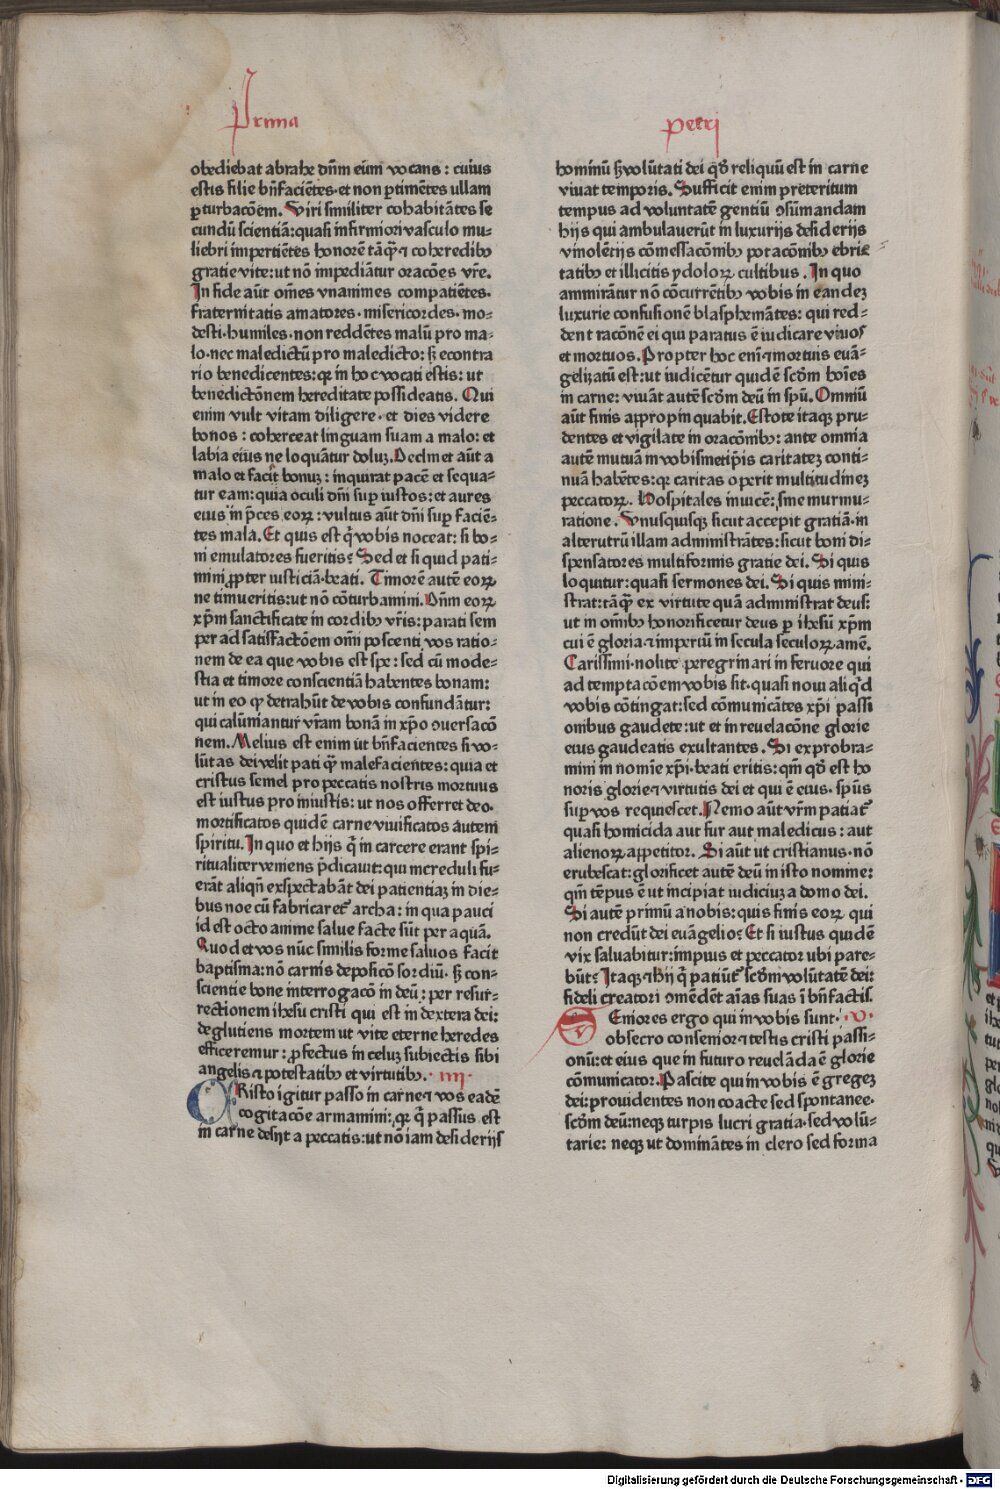 Prima
petri
obediebat abrahe dn̄m eūm vocans : cuius
estis filie bn̄faciētes·et non ꝑtimētes ullam
ꝑturbacōem. Viri similiter cohabitātes se
cundū scientiā:quasi infirmiori vasculo mu⸗
liebri impertiētes honorē tāq̄ꝫ ⁊ coheredibꝫ
gratie vite:ut nō impediātur oracōes vr̄e.
In fide aūt om̄es vnanimes compatiētes·
fraternitatis amatores·misericordes·mo⸗
desti·humiles·non reddētes malū pro ma⸗
lo·nec maledictū pro maledicto: sꝫ econtra
rio benedicentes:qꝛ in hoc vocati estis: ut
benedictōnem hereditate possideatis. Qui
enim vult vitam diligere· et dies videre
bonos : coherceat linguam suam a malo: et
labia eius ne loquātur doluꝫ.Declinet aūt a
malo et facit bonuꝫ : inquirat pacē et sequa⸗
tur eam:quia oculi dn̄i suꝑ iustos:et aures
eius in p̄ces eoꝝ : vultus aūt dn̄i suꝑ faciē⸗
tes mala. Et quis est q̄ vobis noceat: si bo⸗
ni emulatores fueritis? Sed et si quid pati⸗
mini ꝓpter iusticiā·beati. Timorē autē eoꝝ
ne timueritis:ut nō cōturbamini. Dn̄m eoꝝ
xp̄m sanctificate in cordibꝫ vr̄is: parati sem
per ad satisfactōem om̄i poscenti vos ratio⸗
nem de ea que vobis est spe : sed cū mode⸗
stia et timore conscientiā habentes bonam:
ut in eo qꝫ detrahūt de vobis confundātur:
qui calūniantur vr̄am bonā in xp̄o ↄuersacō
nem. Melius est enim ut bn̄facientes si vo⸗
lūtas dei velit pati q̄ꝫ malefacientes: quia et
cristus semel pro peccatis nostris mortuus
est iustus pro iniustis: ut nos offerret deo·
mortificatos quidē carne vivificatos autem
spiritu. In quo et hijs q̄ in carcere erant spi⸗
ritualiter veniens p̄dicauit: qui increduli fu⸗
erāt aliqn̄ exspectabāt dei patientiaꝫ in die⸗
bus noe cū fabricaret᷑ archa: in qua pauci
id est octo anime salue facte sūt per aquā.
Quod et vos nūc similis forme saluos facit
baptisma:nō carnis deposicō sordiū· sꝫ con⸗
scientie bone interrogacō in deū : per resur⸗
rectionem ihesu cristi qui est in dextera dei:
deglutiens mortem ut vite eterne heredes
efficeremur : ꝓfectus in celuꝫ subiectis sibi
angelis ⁊ potestatibꝫ et virtutibꝫ. · iiij ·
CRisto igitur passo in carne ⁊ vos eadē
cogitacōe armamini: qꝛ q̄ passus est
in carne desijt a peccatis: ut nō iam desiderijs
hominū sꝫ volūtati dei qd̄ reliquū est in carne
vivat temporis. Sufficit enim preteritum
tempus ad voluntatē gentiū ↄsūmandam
hijs qui ambulauerūt in luxurijs desiderijs
vinolētijs cōmessacōnibꝫ potacōnibꝫ ebrie⸗
tatibꝫ et illicitis ydoloꝝ cultibus . In quo
ammirātur nō cōcurrētibꝫ vobis in eandeꝫ
luxurie confusionē blasphemātes: qui red⸗
dent racōnē ei qui paratus ē iudicare viuos
et mortuos. Propter hoc eni ⁊ mortuis euā⸗
gelizatū est:ut iudicētur quidē scd̄m hoīes
in carne: viuāt autē scd̄m deū in spū. Omniū
aūt finis appropinquabit. Estote itaqꝫ pru⸗
dentes et vigilate in oracōnibꝫ: ante omnia
autē mutuā in vobismetip̄is caritateꝫ conti⸗
nuā habētes:qꝛ caritas operit multitudineꝫ
peccatoꝝ. Hospitales inuicē: sine murmu⸗
ratione . Vnusquisqꝫ sicut accepit gratiā·in
alterutrū illam administrātes: sicut boni di⸗
spensatores multiformis gratie dei. Si quis
loquitur: quasi sermones dei. Si quis mini⸗
strat: tāq̄ꝫ ex virtute quā administrat deus:
ut in om̄ibꝫ honorificetur deus ꝑ ihesū xp̄m
cui ē gloria ⁊ imperiū in secula seculoꝝ amē.
Carissimi·nolite peregrinari in feruore qui
ad temptacōem vobis fit·quasi noui aliq̄d
vobis cōtingat: sed cōmunicātes xp̄i passi
onibus gaudete: ut et in reuelacōne glorie
eius gaudeatis exultantes . Si exprobra⸗
mini in nomīe xp̄i·beati eritis: qm̄ qd̄ est ho
noris glorie ⁊ virtutis dei et qui ē eius· sp̄us
suꝑ vos requiescet. Nemo aūt vr̄m patiat᷑
quasi homicida aut fur aut maledicus : aut
alienoꝝ appetitor. Si aūt ut cristianus·nō
erubescat:glorificet autē deū in isto nomine:
qm̄ tēpus ē ut incipiat iudiciuꝫ a domo dei.
Si autē primū a nobis: quis finis eoꝝ qui
non credūt dei euāgelio? Et si iustus quidē
vix saluabitur: impius et peccator ubi pare⸗
būt? Itaqꝫ ⁊ hij q̄ patiūt᷑ scd̄m volūtatē dei:
fideli creatori ↄmēdēt aīas suas ī bn̄factis.
SEniores ergo qui in vobis sunt· · v ·
obsecro consenior ⁊ testis cristi passi⸗
onū: et eius que in futuro reuelāda ē glorie
cōmunicator. Pascite qui in vobis ē gregeꝫ
dei: prouidentes non coacte sed spontanee·
scd̄m deū: neqꝫ turpis lucri gratia·sed volū⸗
tarie: neqꝫ ut dominātes in clero sed forma
Digitalisierung gefördert durch die Deutsche Forschungsgemeinschaft - DFG